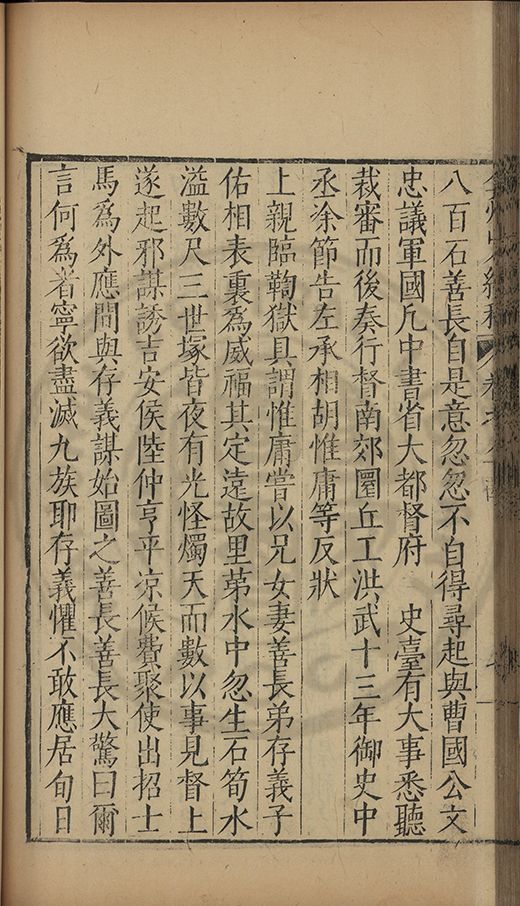 八百石善長自是意忽忽不自得尋起與曹國公文
忠議軍國凡中書省大都督府　史臺有大事悉聽
裁審而後奏行督南郊圜丘工洪武十三年御史中
丞涂節告左丞相胡惟庸等反狀
上親臨鞫獄具謂惟庸嘗以兄女妻善長弟存義子
佑相表裏為威福其定遠故里苐水中忽生石筍水
溢數尺三世塚皆夜有光怪燭天而數以事見督上
遂起邪謀誘吉安侯陸仲亨平凉候費聚使出招士
馬為外應間與存義謀始圖之善長善長大驚曰爾
言何為者寧欲盡滅九族耶存義懼不敢應居旬日